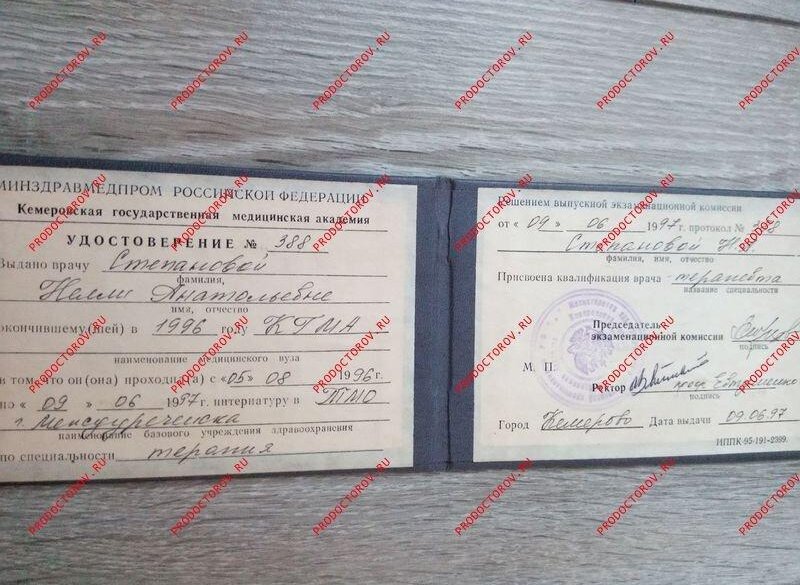 МИНЗДРАВМЕДПРОМ РОССИЙСКОЙ ФЕДЕРАЦИИ
Кемеровская государственная медицинская академия
УДОСТОВЕРЕНИЕ № 388
Выдано врачу Степановой
фамилия,
Нелли Анатольевне
имя, отчество
окончившему(шей) в 1996 году КГМА
наименование медицинского вуза
в том, что он(она) проходил(а) с «05» 08 1996 г.
по «09» 06 1997 г. интернатуру в ТМО
г. Междуреченска
наименование базового учреждения здравоохранения
по специальности терапия
Решением выпускной экзаменационной комиссии
от «09» 06 1997 г. протокол № 388
Степановой Н.А.
фамилия, имя, отчество
Присвоена квалификация врача терапевта
название специальности
Председатель
экзаменационной комиссии
подпись
М. П.
Ректор проф.
подпись
Город Кемерово Дата выдачи 09.06.97
ИППК-95-191-2399.
PRODOCTOROV.RU